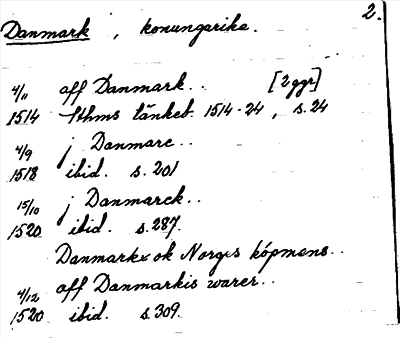 Danmark, konungarike. 2.
4/11 aff Danmark.. [2 ggr]
1514 Sthms tänkeb. 1514-24, s. 24
4/9 j Danmarc..
1518 ibid. s. 201
15/10 j Danmarck..
1520 ibid. s. 287.
Danmarks ok Norges köpmens..
4/12 aff Danmarkis warer..
1520 ibid. s. 309.